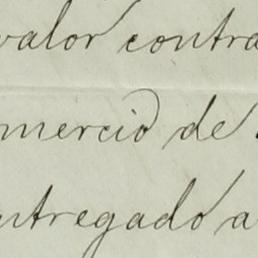 valor contra
mercio de
ntregado a